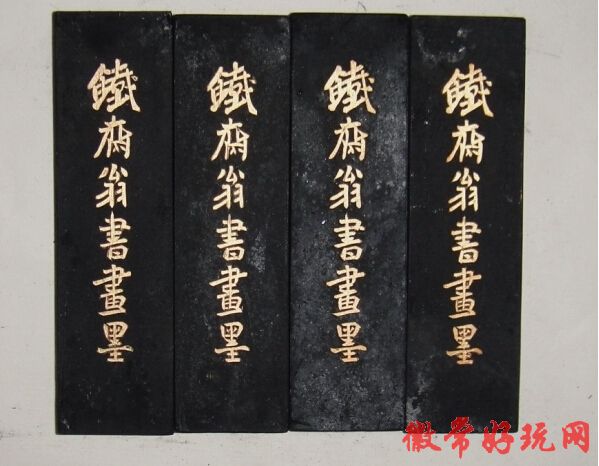 鐵斎翁書畫墨
鐵斎翁書畫墨
鐵斎翁書畫墨
鐵斎翁書畫墨
徽常好玩网